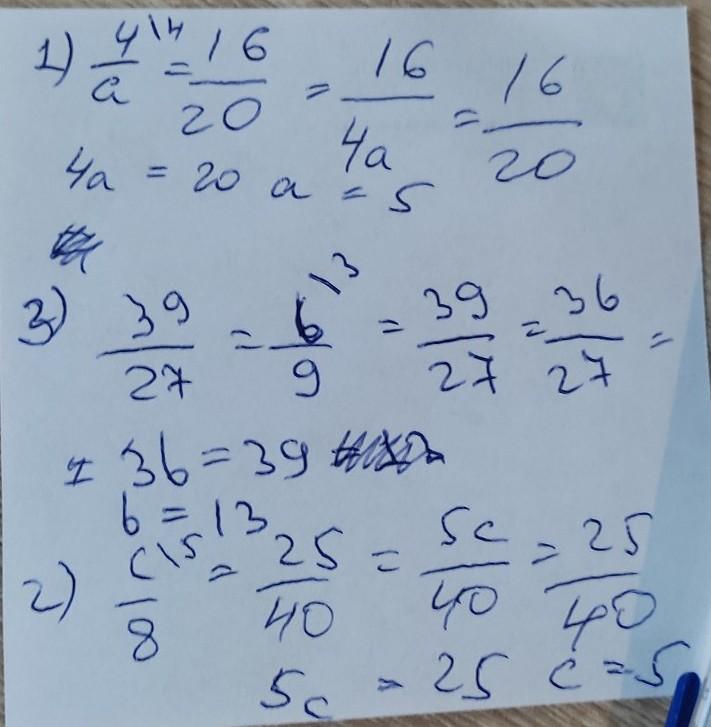 1) 4\4/a = 16/20 = 16/4a = 16/20
4a = 20 a = 5
3) 39/27 = b\3/9 = 39/27 = 3b/27 =
= 3b = 39
b = 13
2) c\5/8 = 25/40 = 5c/40 = 25/40
5c = 25 c = 5